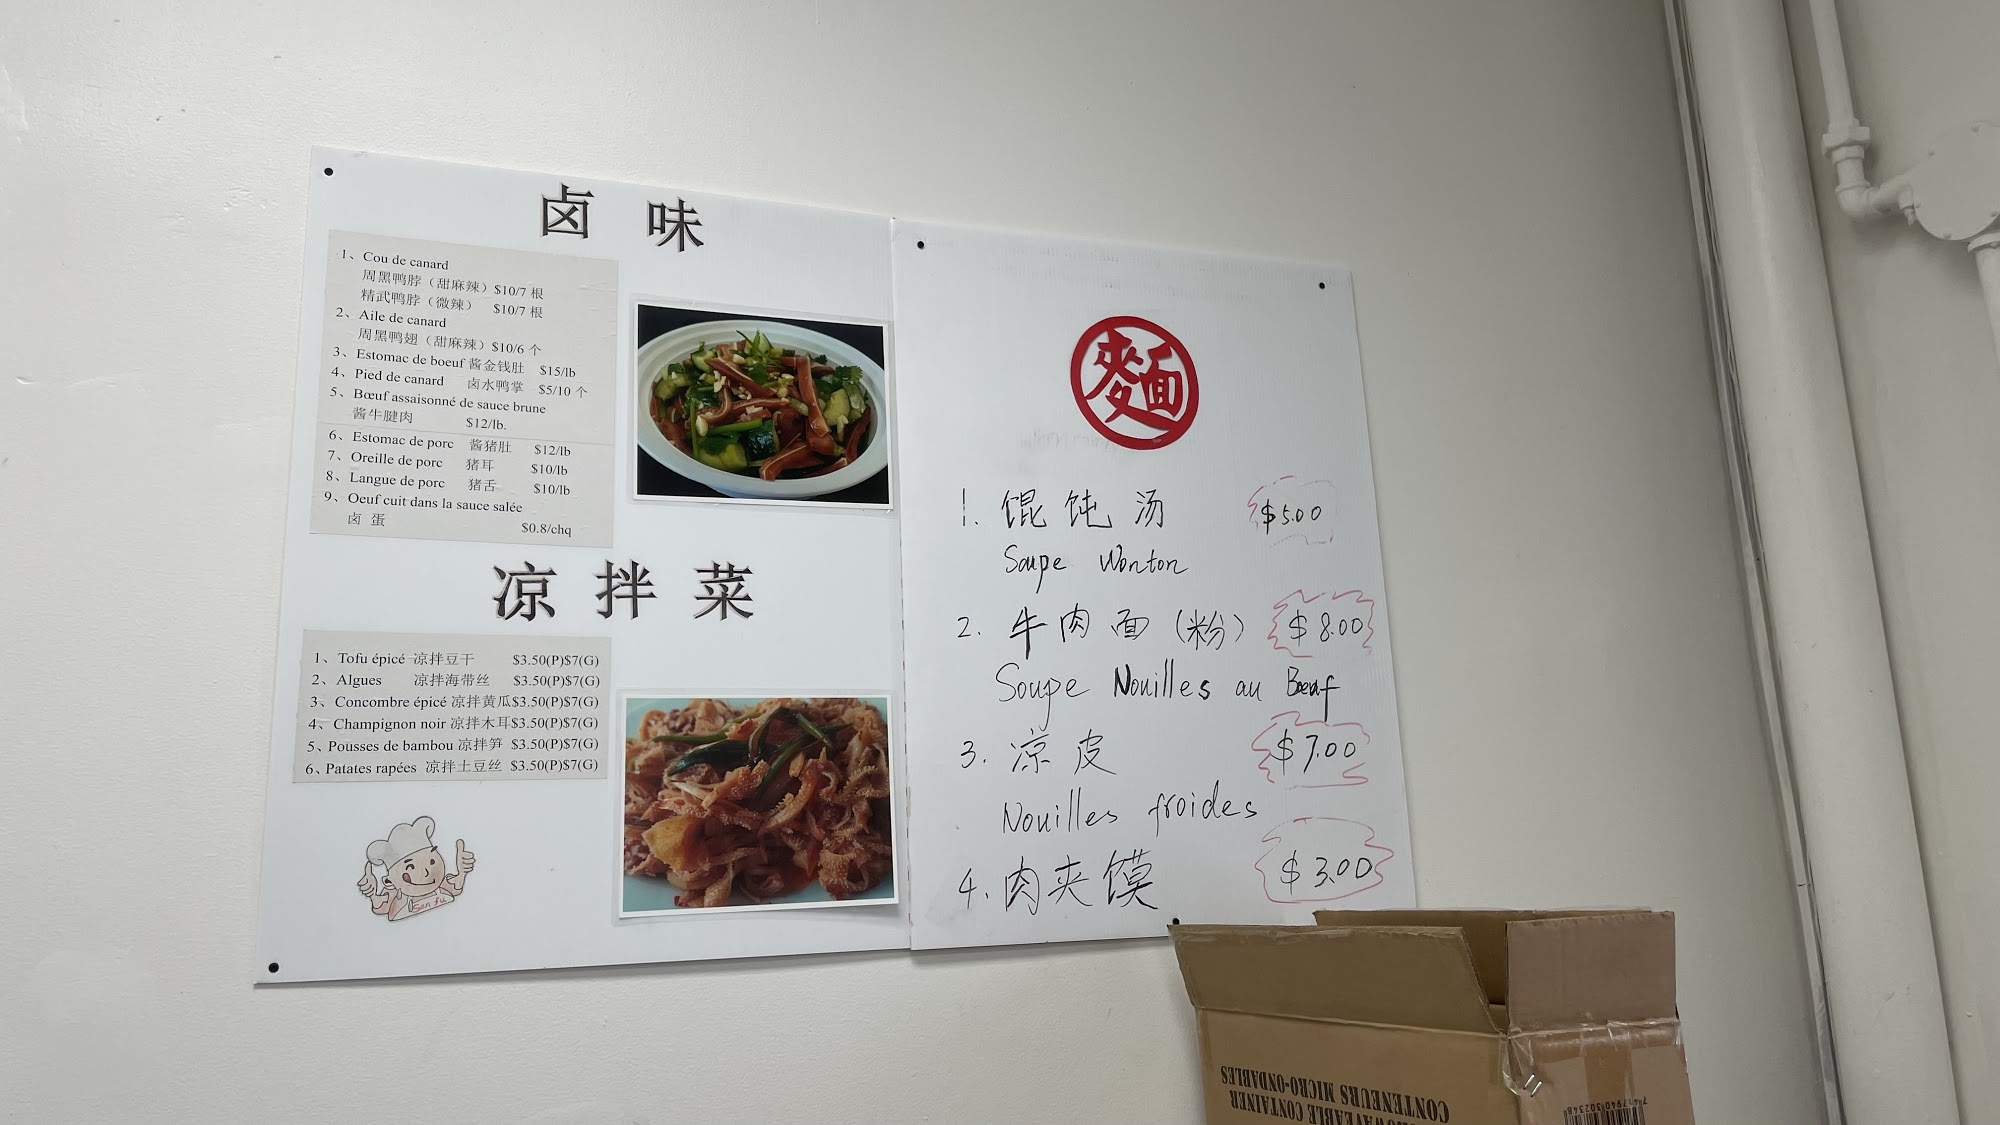 卤 味
1、Cou de canard
周黑鸭脖（甜麻辣）$10/7 根
精武鸭脖（微辣） $10/7 根
2、Aile de canard
周黑鸭翅（甜麻辣）$10/6 个
3、Estomac de boeuf 酱金钱肚 $15/lb
4、Pied de canard 卤水鸭掌 $5/10 个
5、Bœuf assaisonné de sauce brune
酱牛腱肉 $12/lb.
6、Estomac de porc 酱猪肚 $12/lb
7、Oreille de porc 猪耳 $10/lb
8、Langue de porc 猪舌 $10/lb
9、Oeuf cuit dans la sauce salée
卤 蛋 $0.8/chq
凉 拌 菜
1、Tofu épicé 凉拌豆干 $3.50(P)$7(G)
2、Algues 凉拌海带丝 $3.50(P)$7(G)
3、Concombre épicé 凉拌黄瓜$3.50(P)$7(G)
4、Champignon noir 凉拌木耳$3.50(P)$7(G)
5、Pousses de bambou 凉拌笋 $3.50(P)$7(G)
6、Patates rapées 凉拌土豆丝 $3.50(P)$7(G)
San fu
麵
1. 馄饨汤 $5.00
Soupe Wonton
2. 牛肉面（粉） $8.00
Soupe Nouilles au Boeuf
3. 凉皮 $7.00
Nouilles froides
4. 肉夹馍 $3.00
CONTENEURS MICRO-ONDABLES
CONTAINER
7 47940 302348